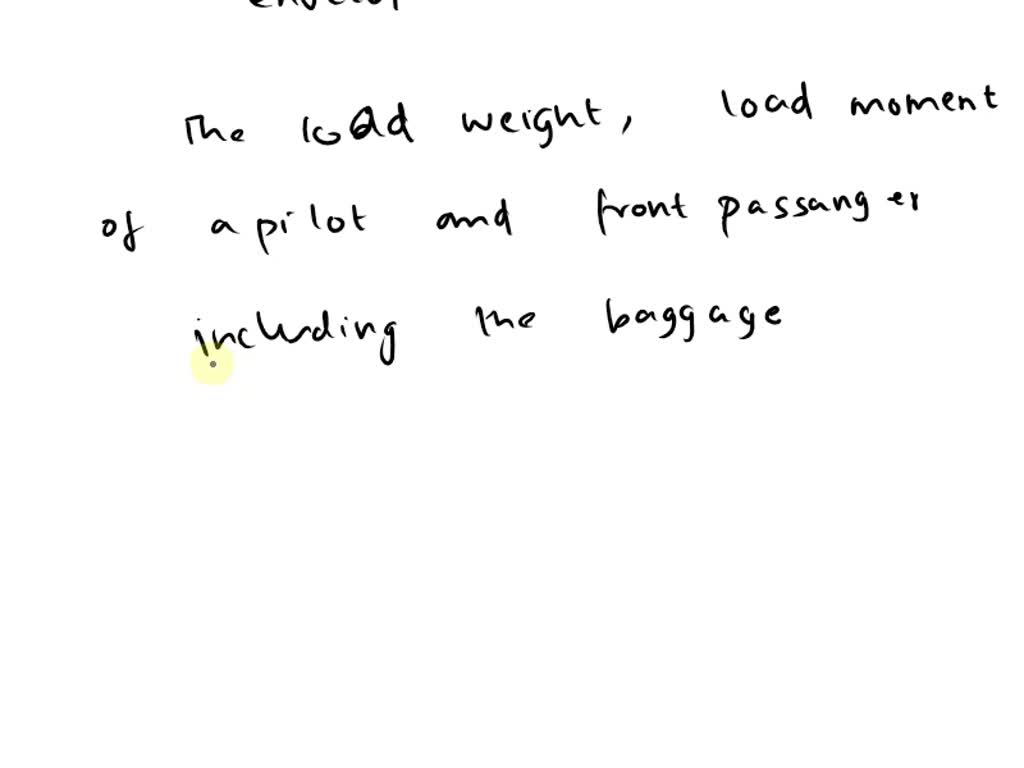 The load weight, load moment
of a pilot and front passanger
including the baggage